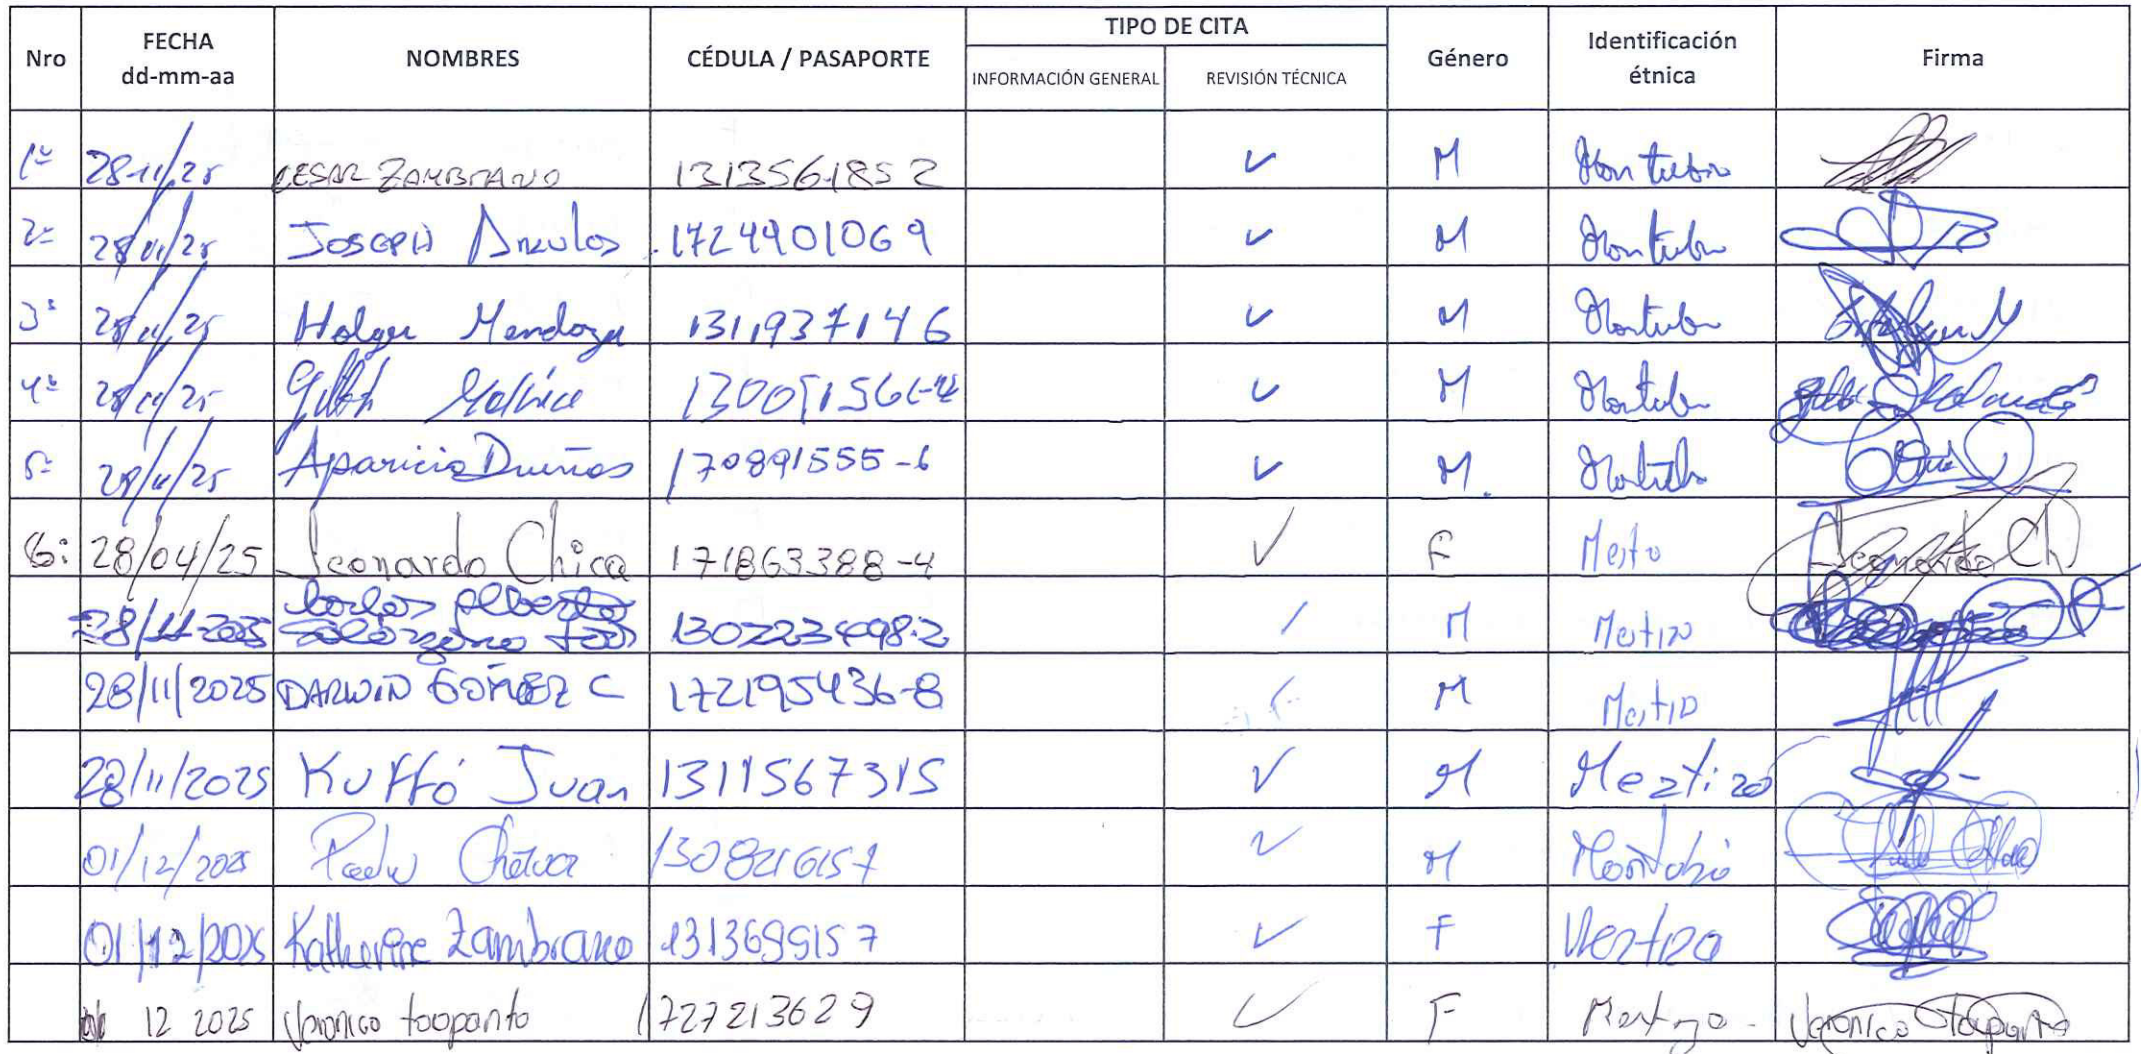 Nro FECHA dd-mm-aa NOMBRES CÉDULA / PASAPORTE TIPO DE CITA INFORMACIÓN GENERAL REVISIÓN TÉCNICA Género Identificación étnica Firma
1º 28-11/25 CESAR ZAMBRANO 1313561852 ✓ M Montubio
2º 28/11/25 JOSEPH 1724901069 ✓ M Montubio
3º 28/11/25 Holger Mendoza 131193714 6 ✓ M Montubio
4º 28/11/25 ✓ M Montubio
5º 28/11/25 Aparicio Dueñas 170891555-6 ✓ M. Montubio
6: 28/04/25 Leonardo Chica 171863388-4 ✓ F Mesto Leonardo Ch
28/11-2025 Carlos Alberto 130223498-2 / M Mestizo
28/11/2025 DARWIN GÓMEZ C 172195436-8 M Mestizo
28/11/2025 Kuffó Juan 1311567315 ✓ M Meztizo
01/12/2025 1308216157 ✓ M
01/12/2025 Katherine Zambrano 1313699157 ✓ F Mestiza
12 2025 Veronica toapanta 1727213629 ✓ F Veronica Toapanta